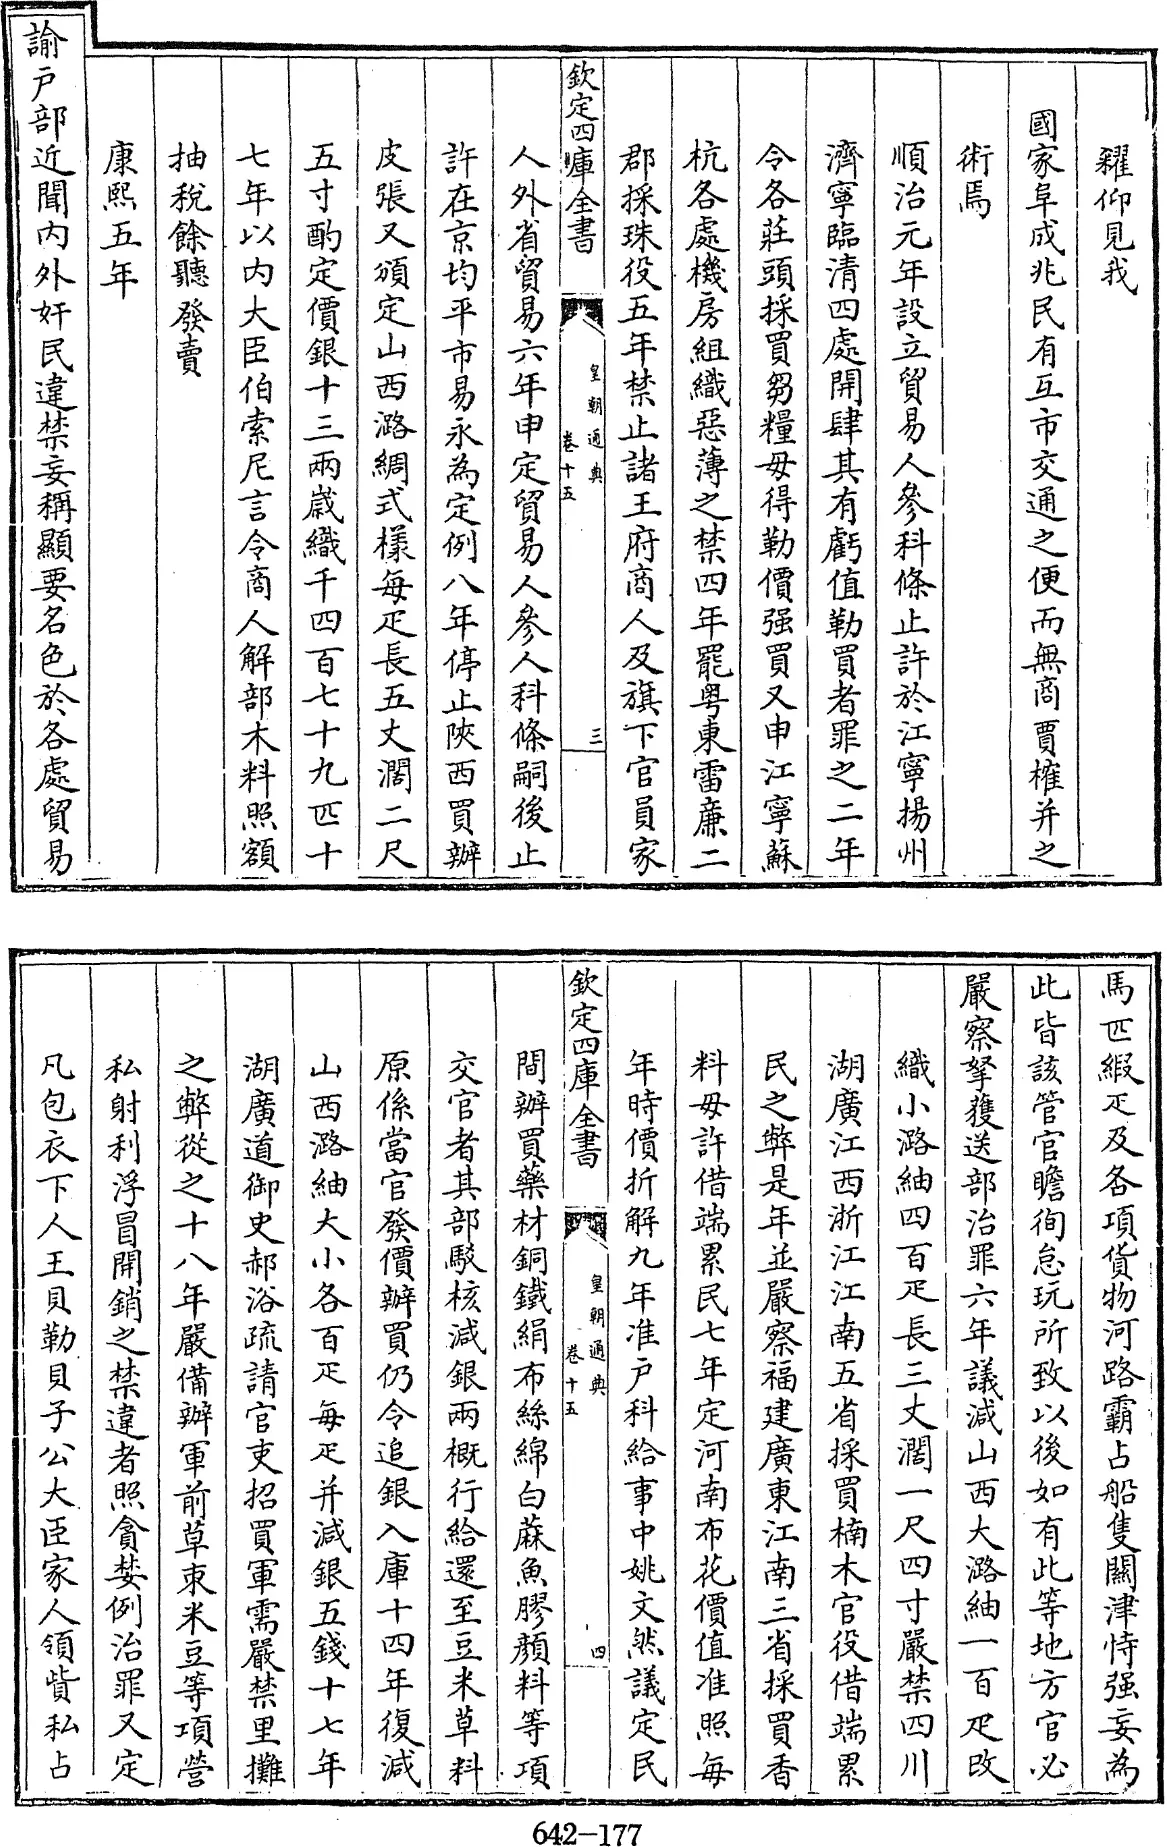 糴仰見我
國家阜成兆民有互市交通之便而無商賈榷并之
術焉
順治元年設立貿易人參科條止許於江寧揚州
濟寧臨清四處開肆其有虧值勒買者罪之二年
令各莊頭採買芻糧毋得勒價强買又申江寧蘇
杭各處機房組織惡薄之禁四年罷粤東雷廉二
郡採珠役五年禁止諸王府商人及旗下官員家
欽定四庫全書
皇朝通典
卷十五
三
人外省貿易六年申定貿易人參人科條嗣後止
許在京均平市易永為定例八年停止陜西買辦
皮張又頒定山西潞綢式樣每疋長五丈濶二尺
五寸酌定價銀十三兩歲織千四百七十九匹十
七年以内大臣伯索尼言令商人解部木料照額
抽稅餘聽發賣
康熙五年
諭戶部近聞内外奸民違禁妄稱顯要名色於各處貿易
馬匹緞疋及各項貨物河路霸占船隻關津恃强妄為
此皆該管官瞻徇怠玩所致以後如有此等地方官必
嚴察拏獲送部治罪六年議減山西大潞紬一百疋改
織小潞紬四百疋長三丈濶一尺四寸嚴禁四川
湖廣江西浙江江南五省採買楠木官役借端累
民之弊是年並嚴察福建廣東江南三省採買香
料毋許借端累民七年定河南布花價值准照每
年時價折解九年准户科給事中姚文然議定民
欽定四庫全書
皇朝通典
卷十五
四
間辦買藥材銅鐵絹布絲綿白蔴魚膠顔料等項
交官者其部駁核減銀兩概行給還至豆米草料
原係當官發價辦買仍令追銀入庫十四年復減
山西潞紬大小各百疋每疋并減銀五錢十七年
湖廣道御史郝浴疏請官吏招買軍需嚴禁里攤
之弊從之十八年嚴備辦軍前草束米豆等項營
私射利浮冒開銷之禁違者照貪婪例治罪又定
凡包衣下人王貝勒貝子公大臣家人領貲私占
642-177